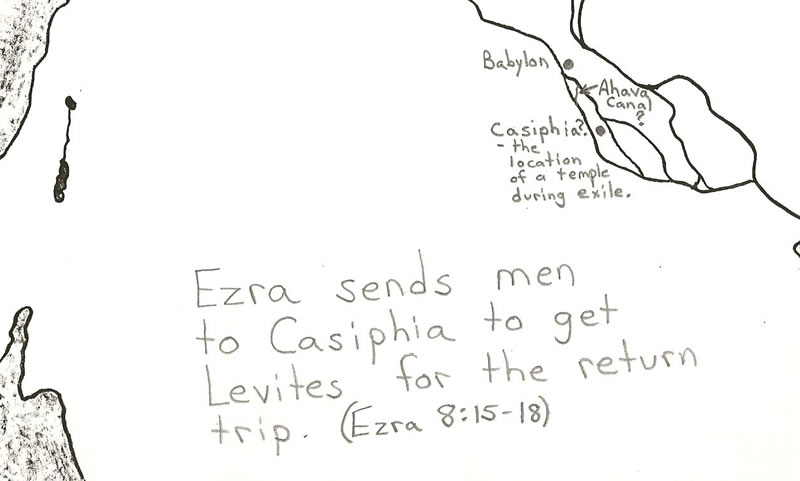 Babylon
Ahava
Canal
?
Casiphia?
- the
location
of a temple
during exile.
Ezra sends men
to Casiphia to get
Levites for the return
trip. (Ezra 8:15-18)